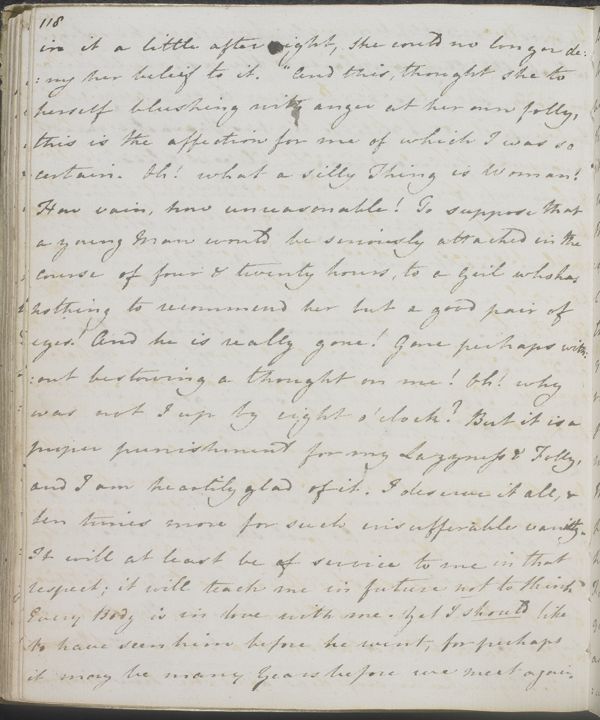 118
in it a little after eight, she could no longer de:
:ny her belief to it. "And this, thought she to
herself blushing with anger at her own folly,
this is the affection for me of which I was so
certain. Oh! what a silly Thing is Woman!
How vain, how unreasonable! To suppose that
a young Man would be seriously attached in the
course of four & twenty hours, to a Girl who has
nothing to recommend her but a good pair of
eyes! And he is really gone! Gone perhaps with:
:out bestowing a thought on me! Oh! why
was not I up by eight o'clock? But it is a
proper punishment for my Lazyness & Folly,
and I am heartily glad of it. I deserve it all, &
ten times more for such insufferable vanity.
It will at least be of service to me in that
respect; it will teach me in future not to think
Every Body is in love with me. Yet I should like
to have seen him before he went, for perhaps
it may be many Years before we meet again.